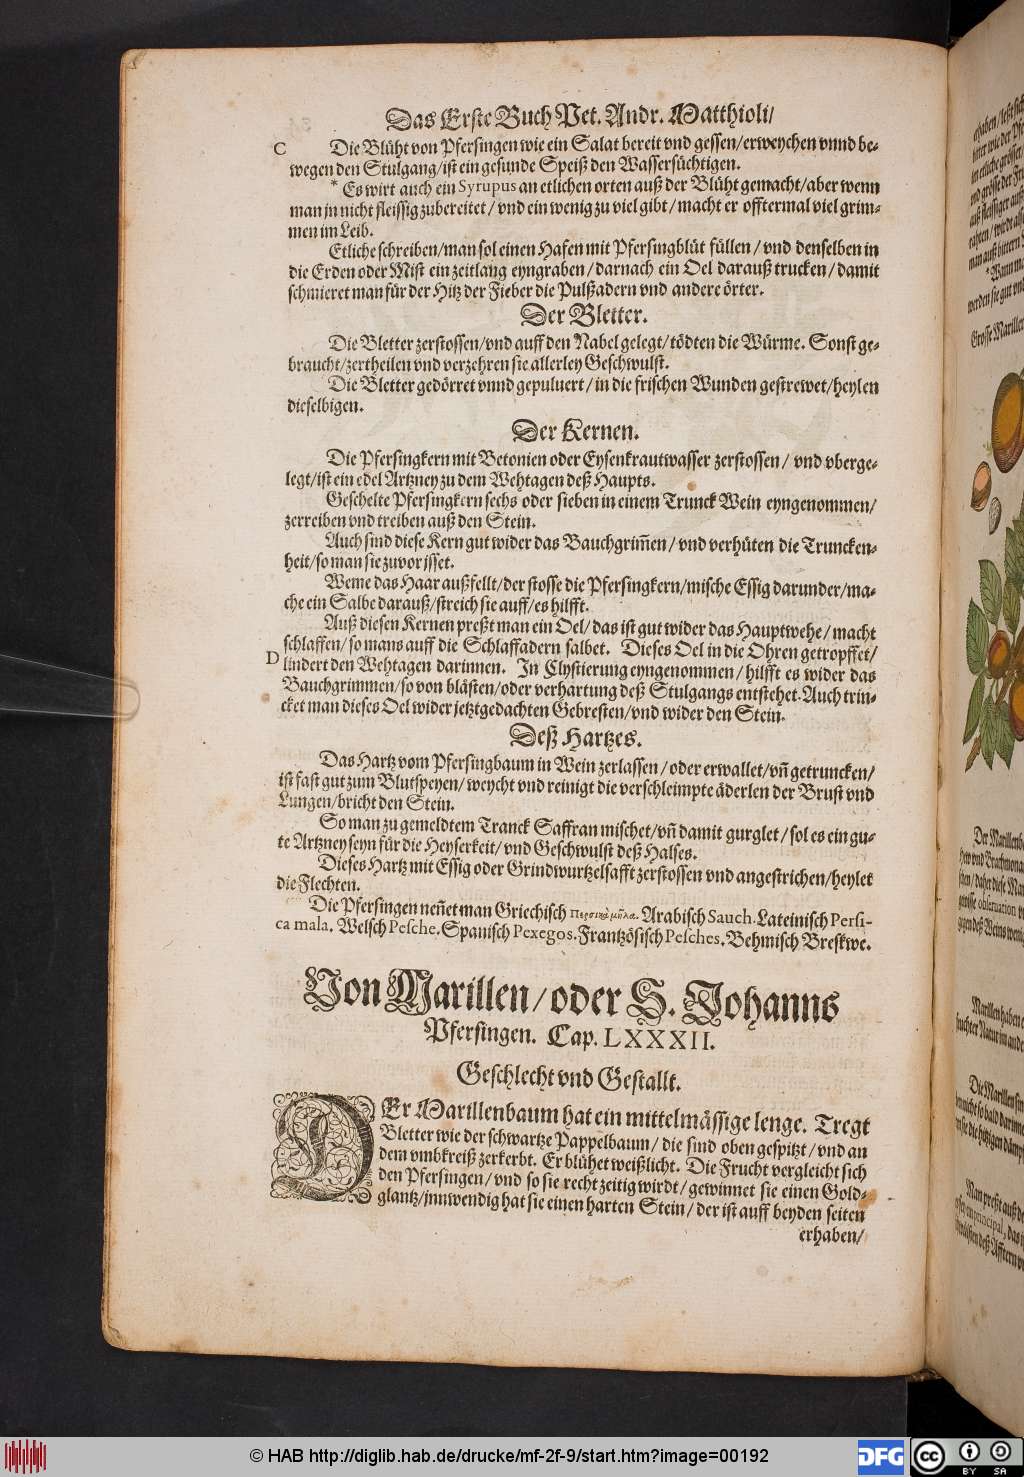 Das Erste Buch Pet. Andr. Matthioli/
C Die Blüht von Pfersingen wie ein Salat bereit vnd gessen/erweychen vnnd be-
wegen den Stulgang/ist ein gesunde Speiß den Wassersüchtigen.
* Es wirt auch ein Syrupus an etlichen orten auß der Blüht gemacht/aber wenn
man jn nicht fleissig zubereitet/ vnd ein wenig zu viel gibt/ macht er offtermal viel grim-
men im Leib.
Etliche schreiben/man sol einen Hafen mit Pfersingblüt füllen/ vnd denselben in
die Erden oder Mist ein zeitlang eyngraben/darnach ein Oel darauß trucken/damit
schmieret man für der Hitz der Fieber die Pulßadern vnd andere örter.
Der Bletter.
Die Bletter zerstossen/vnd auff den Nabel gelegt/tödten die Würme. Sonst ge-
braucht/zertheilen vnd verzehren sie allerley Geschwulst.
Die Bletter gedörret vnnd gepuluert/in die frischen Wunden gestrewet/heylen
dieselbigen.
Der Kernen.
Die Pfersingkern mit Betonien oder Eysenkrautwasser zerstossen/ vnd vberge-
legt/ist ein edel Artzney zu dem Wehtagen deß Haupts.
Geschelte Pfersingkern sechs oder sieben in einem Trunck Wein eyngenommen/
zerreiben vnd treiben auß den Stein.
Auch sind diese Kern gut wider das Bauchgrim̃en/ vnd verhüten die Truncken-
heit/so man sie zuvor isset.
Weme das Haar außfellt/der stosse die Pfersingkern/mische Essig darunder/ma-
che ein Salbe darauß/streich sie auff/es hilfft.
Auß diesen Kernen preßt man ein Oel/das ist gut wider das Hauptwehe/ macht
schlaffen/so mans auff die Schlaffadern salbet. Dieses Oel in die Ohren getropffet/
D lindert den Wehtagen darinnen. In Clystierung eyngenommen/hilfft es wider das
Bauchgrimmen/so von blästen/oder verhartung deß Stulgangs entstehet. Auch trin-
cket man dieses Oel wider jetztgedachten Gebresten/vnd wider den Stein.
Deß Hartzes.
Das Hartz vom Pfersingbaum in Wein zerlassen/oder erwallet/vñ getruncken/
ist fast gut zum Blutspeyen/weycht vnd reinigt die verschleimpte äderlen der Brust vnd
Lungen/bricht den Stein.
So man zu gemeldtem Tranck Saffran mischet/vñ damit gurglet/sol es ein gu-
te Artzney seyn für die Heyserkeit/ vnd Geschwulst deß Halses.
Dieses Hartz mit Essig oder Grindwurtzelsafft zerstossen vnd angestrichen/heylet
die Flechten.
Die Pfersingen neñet man Griechisch Περσικὰ μῆλα. Arabisch Sauch. Lateinisch Persi-
ca mala. Welsch Pesche. Spanisch Pexegos. Frantzösisch Pesches. Behmisch Breskwe.
Von Marillen/oder S. Johanns
Pfersingen. Cap. LXXXII.
Geschlecht vnd Gestallt.
DEr Marillenbaum hat ein mittelmässige lenge. Tregt
Bletter wie der schwartze Pappelbaum/ die sind oben gespitzt/vnd an
dem vmbkreiß zerkerbt. Er blühet weißlicht. Die Frucht vergleicht sich
den Pfersingen/ vnd so sie recht zeitig wirdt/gewinnet sie einen Gold-
glantz/jnnwendig hat sie einen harten Stein/der ist auff beyden seiten
erhaben/
© HAB http://diglib.hab.de/drucke/mf-2f-9/start.htm?image=00192
DFG
cc BY SA